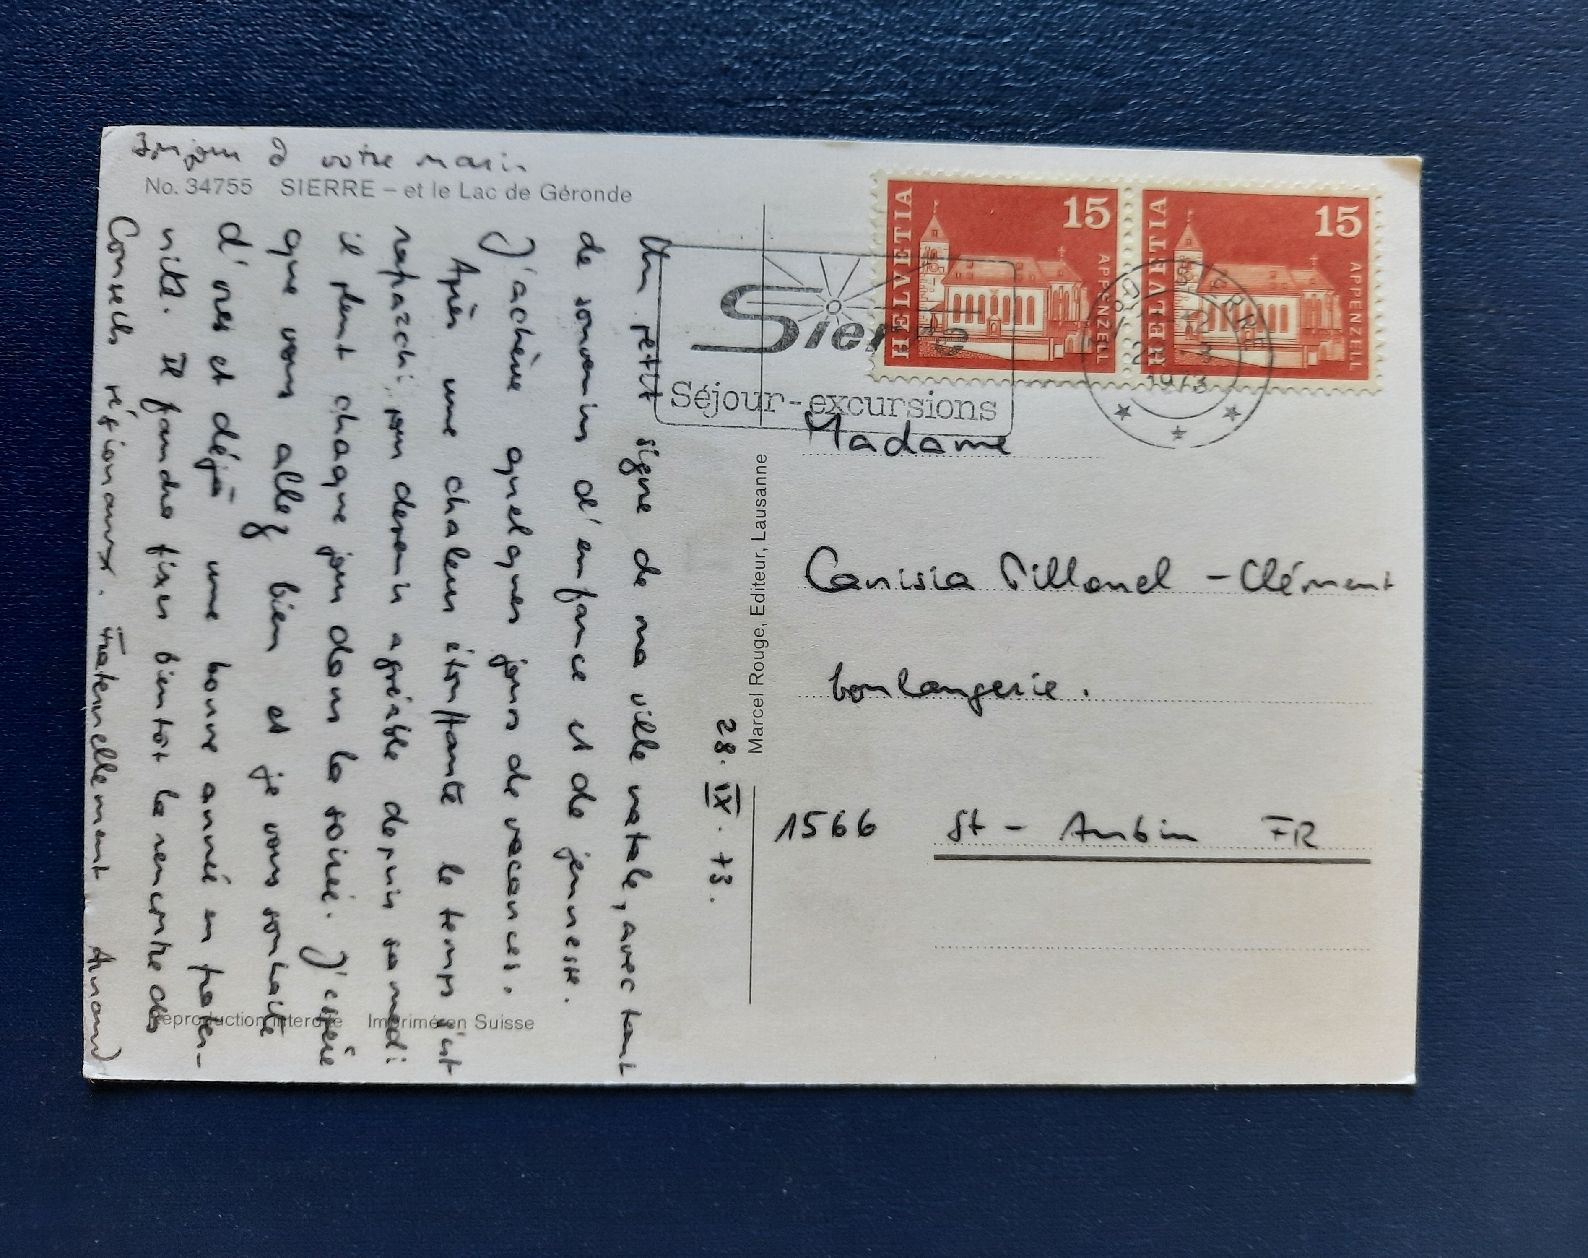 Bonjour à votre mari
No. 34755 SIERRE – et le Lac de Géronde
28.IX.73.
Un petit signe de ma ville natale, avec tant
de souvenirs d'enfance et de jeunesse.
J'achève quelques jours de vacances.
Après une chaleur étouffante le temps s'est
rafraichi pour devenir agréable depuis samedi
il pleut chaque jour dans la soirée. J'espère
que vous allez bien et je vous souhaite
d'ores et déjà une bonne année en frater-
nité. Il faudra fixer bientôt la rencontre des
Conseils régionaux. Fraternellement Amand
Reproduction interdite Imprimé en Suisse
Marcel Rouge, Editeur, Lausanne
Sierre
Séjour-excursions
HELVETIA 15 APPENZELL
HELVETIA 15 APPENZELL
SIERRE
1973
Madame
Canisia Pillonel-Clément
boulangerie.
1566 St-Aubin FR